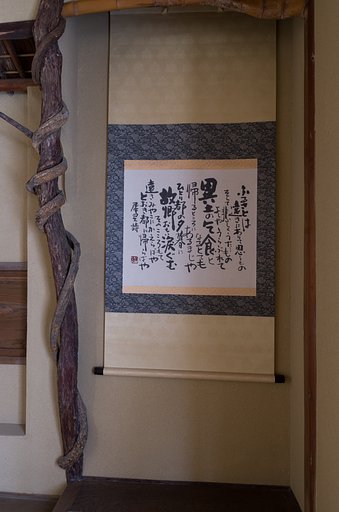 ふるさとは
遠きにありて思ふもの
そして悲しくうたふもの
よしやうらぶれて
異土の乞食と
なるとても
帰るところにあるまじや
ひとり都の夕暮に
故郷おもひ涙ぐむ
そのこころもて
遠きみやこにかへらばや
とおき都に帰らばや
犀星詩